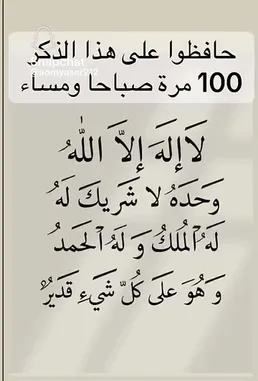 حافظوا على هذا الذكر
100 مرة صباحا ومساء
لَاإِلَهَ إِلاَّ اللّٰهُ
وَحَدَهُ لا شَرِيكَ لَهُ
لَهُ ٱلمُلكُ وَ لَهُ ٱلحَمدُ
وَ هُوَ عَلَى كُلَّ شَيءٍ قَدِيرٌ